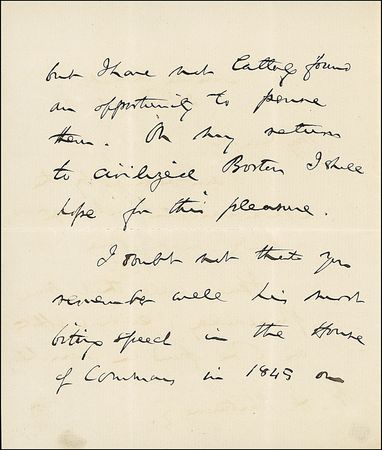 but I have not lately found
an opportunity to peruse
them. On my return
to civilized Boston I shall
hope for this pleasure.
I doubt not that you
remember well his most
biting speech in the House
of Commons in 1845 on